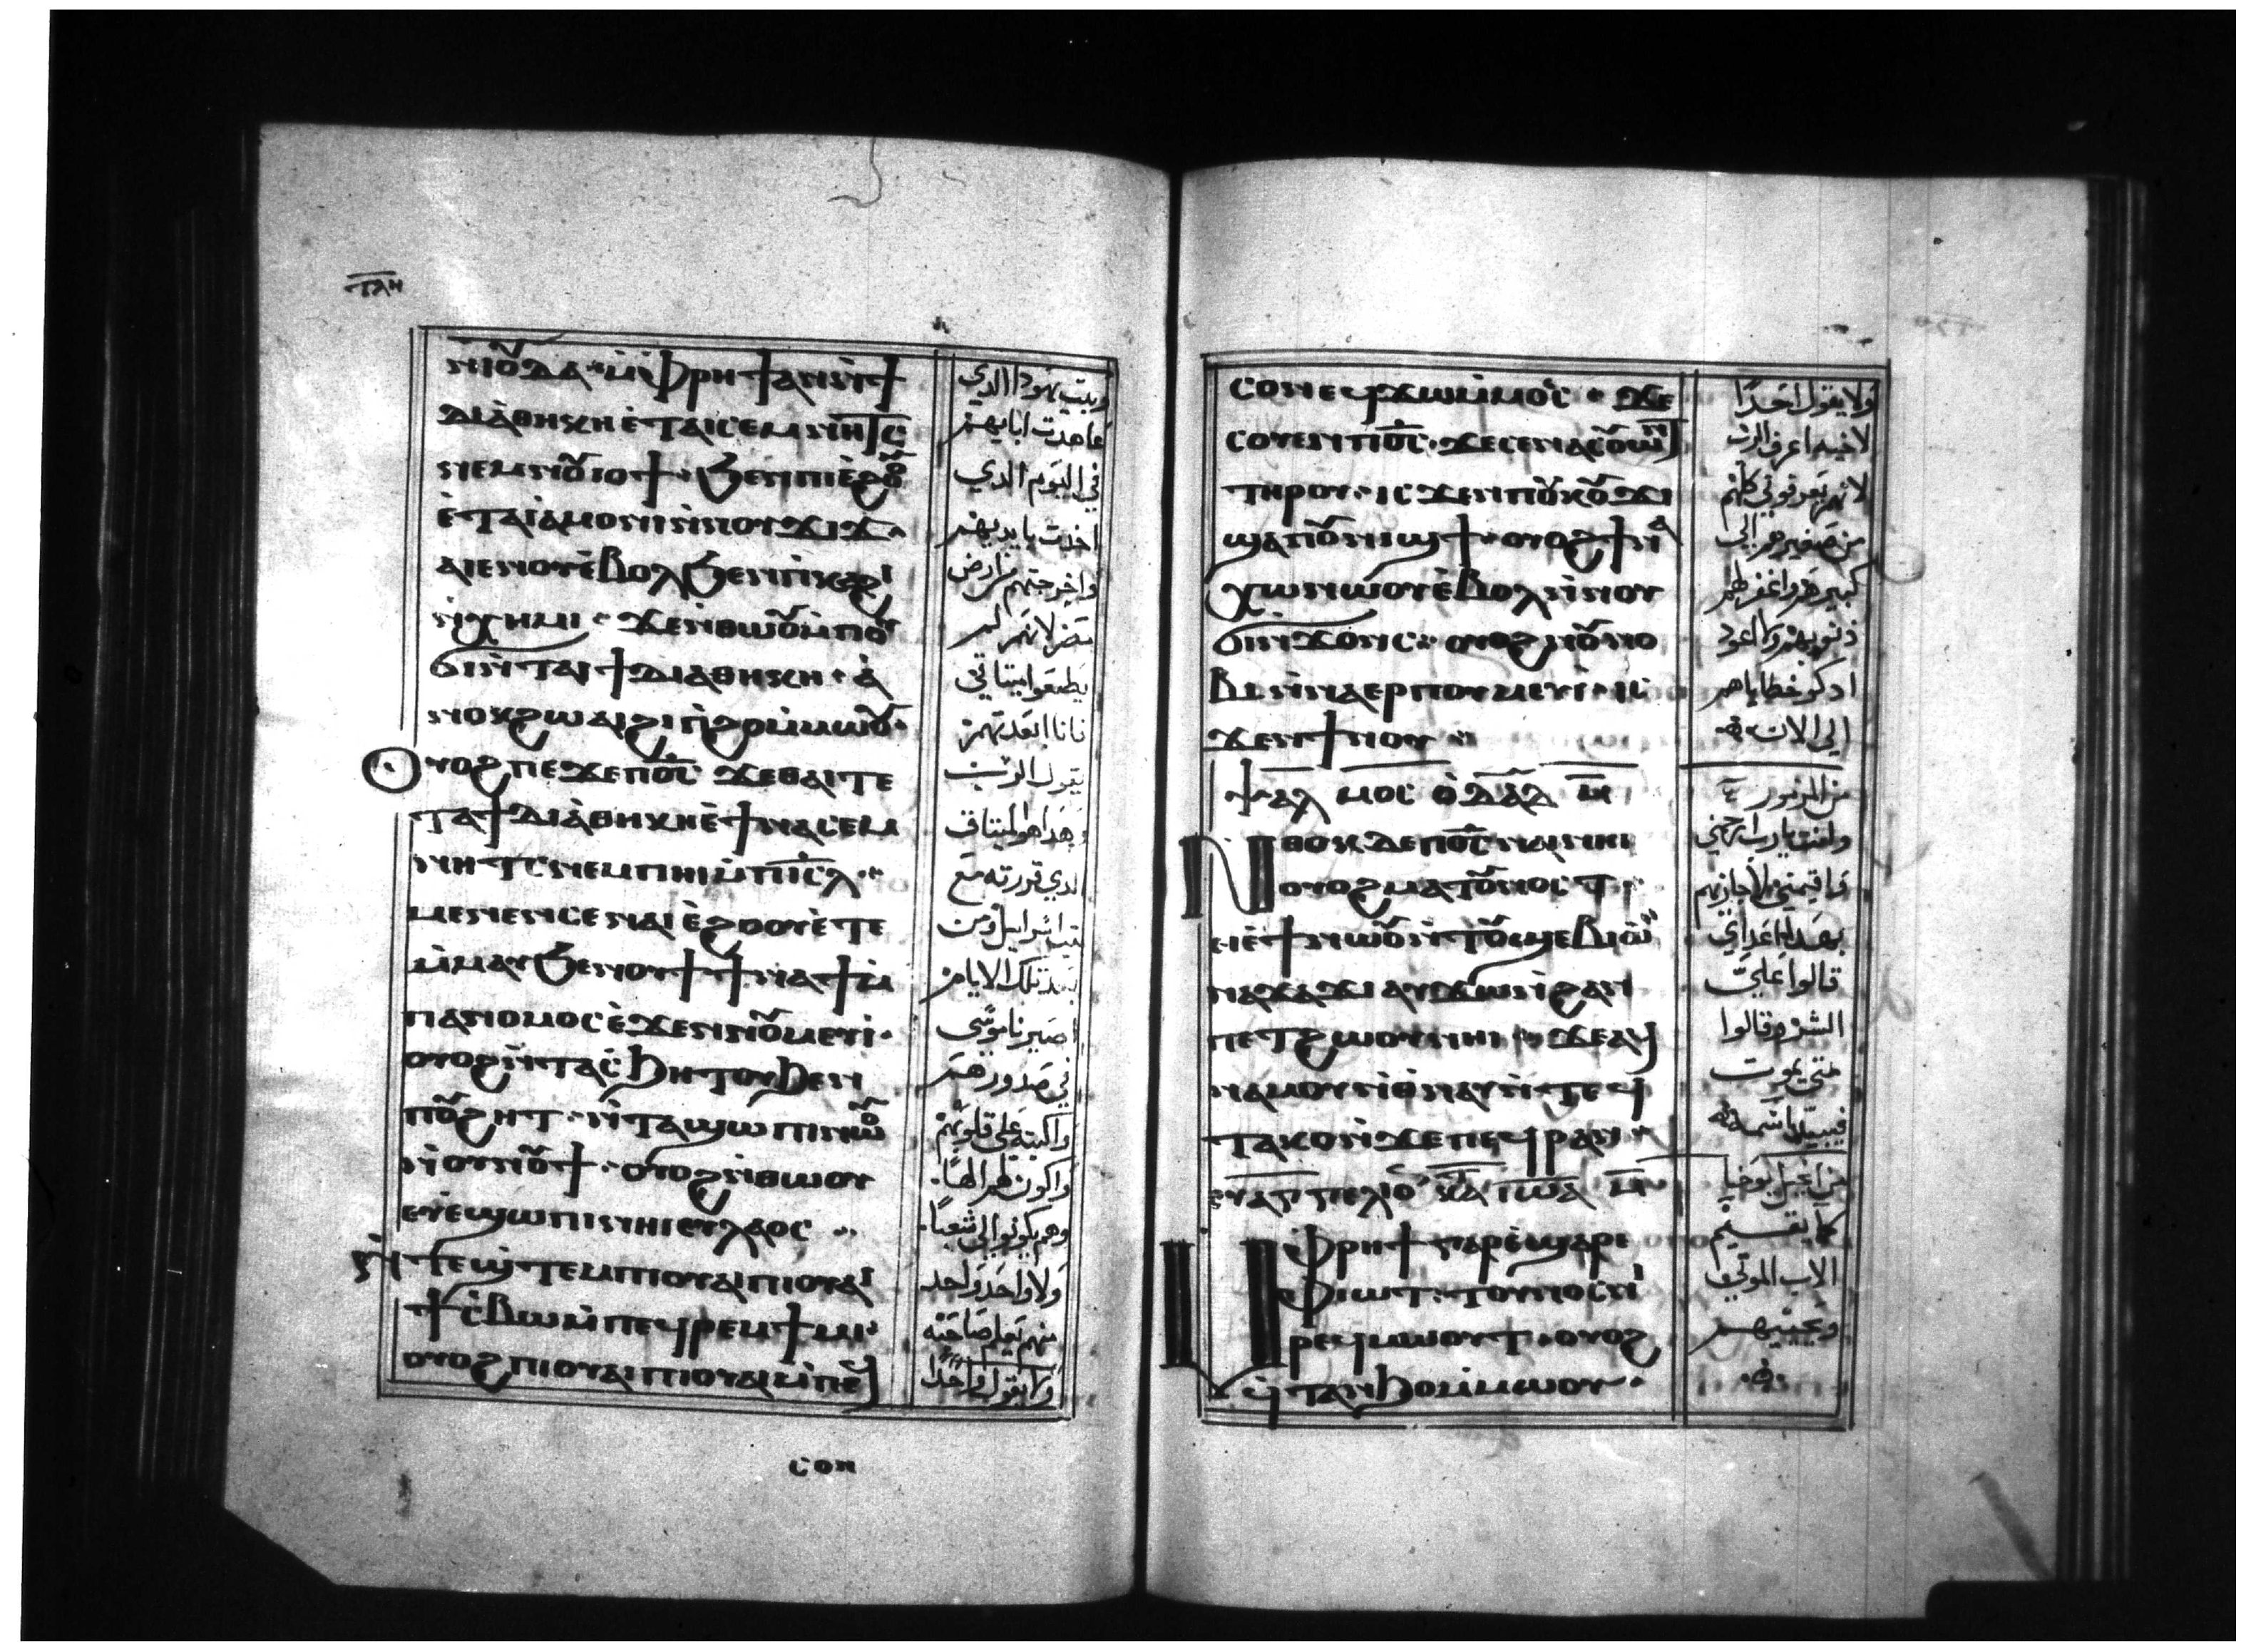 ⲧⲗⲏ
ⲛⲓⲟⲩⲇⲁ ⲙ̀ⲫⲣⲏϯ ⲁⲛ ⲛ̀ϯ
ⲇⲓⲁⲑⲏⲕⲏ ⲉ̀ⲧⲁⲓⲥⲉⲙⲛⲏⲧⲥ
ⲛⲉⲙ ⲛⲟⲩⲓⲟϯ ϧⲉⲛ ⲡⲓⲉ̀ϩⲟⲟⲩ
ⲉ̀ⲧⲁⲓⲁ̀ⲙⲟⲛⲓ ⲛ̀ⲛⲟⲩϫⲓϫ
ⲁⲓⲉⲛⲟⲩ ⲉ̀ⲃⲟⲗ ϧⲉⲛ ⲡⲕⲁϩⲓ
ⲛ̀ⲭⲏⲙⲓ ϫⲉ ⲛ̀ⲑⲱⲟⲩ ⲙ̀ⲡⲟⲩ
ϭⲓ ⲛ̀ⲧⲁⲓϯⲇⲓⲁⲑⲏⲕⲏ ⲁ̀
ⲛⲟⲕ ϩⲱ ⲁⲓϩⲓ ⲡ̀ϩⲟ ⲙ̀ⲙⲱⲟⲩ
ⲟⲩⲟϩ ⲡⲉϫⲉ ⲡⲟ̅ⲥ̅ ϫⲉ ⲑⲁⲓ ⲧⲉ
ⲧⲁϯⲇⲓⲁⲑⲏⲕⲏ ⲉ̀ϯⲛⲁⲥⲉⲙ
ⲛⲏⲧⲥ ⲛⲉⲙ ⲡⲏⲓ ⲙ̀ⲡⲓⲥ̅ⲗ̅
ⲙⲉⲛⲉⲛⲥⲉ ⲛⲁⲓ ⲉ̀ϩⲟⲟⲩ ⲉ̀ⲧⲉ
ⲙ̀ⲙⲁⲩ ϧⲉⲛ ⲟⲩϯ ϯⲛⲁϯ ⲙ̀
ⲡⲁⲛⲟⲙⲟⲥ ⲉ̀ϫⲉⲛ ⲛⲟⲩⲙⲉⲩⲓ
ⲟⲩⲟϩ ⲛ̀ⲧⲁⲥϧⲏⲧⲟⲩ ϧⲉⲛ
ⲡⲟⲩϩⲏⲧ ⲛ̀ⲧⲁϣⲱⲡⲓ ⲛⲱⲟⲩ
ⲛ̀ⲟⲩⲛⲟⲩϯ ⲟⲩⲟϩ ⲛ̀ⲑⲱⲟⲩ
ⲉⲩⲉ̀ϣⲱⲡⲓ ⲛⲏⲓ ⲉⲩⲗⲁⲟⲥ
ⲛ̀ⲛⲉϣⲧⲉⲙ ⲡⲓⲟⲩⲁⲓ ⲡⲓⲟⲩⲁⲓ
ϯⲥ̀ⲃⲱ ⲙ̀ⲡⲉϥⲣⲉⲙϯⲙⲓ
ⲟⲩⲟϩ ⲡⲓⲟⲩⲁⲓ ⲡⲓⲟⲩⲁⲓ ⲙ̀ⲡⲉϥ
ⲥⲟⲛ
وبيت يهودا الدي
عاهدت اباييهم
في اليوم الدي
اخدت بايديهم
واخرجتهم من ارض
مصر لانهم لم
يطيعوا ميتاقي
فانا ابعدتهم
يقول الرب
وهدا هو الميتاق
الدي قررته مع
بيت اسراييل ومن
بعد تلك الايام
اصير ناموسي
في صدورهم
واكتبه علي قلوبهم
واكون لهم الها
وهم يكونوا لي شعبا
ولا واحد واحد
منهم يعلم صاحبه
ولا يقول واحدا
ⲥⲟⲛ ⲉϥϫⲱ ⲙ̀ⲙⲟⲥ ϫⲉ
ⲥⲟⲩⲉⲛ ⲡⲟ̅ⲥ̅ ϫⲉ ⲥⲉⲛⲁⲥⲟⲩⲱⲛⲧ
ⲧⲏⲣⲟⲩ ⲓⲥϫⲉⲛ ⲡⲟⲩⲕⲟⲩϫⲓ
ϣⲁ ⲡⲟⲩⲛⲓϣϯ ⲟⲩⲟϩ ϯⲛⲁ
ⲭⲱ ⲛⲱⲟⲩ ⲉ̀ⲃⲟⲗ ⲛ̀ⲛⲟⲩ
ϭⲓⲛϫⲟⲛⲥ ⲟⲩⲟϩ ⲛⲟⲩⲛⲟ
ⲃⲓ ⲛ̀ⲛⲁⲉⲣⲡⲟⲩⲙⲉⲩⲓ ⲓⲥ
ϫⲉⲛ ϯⲛⲟⲩ
ⲯⲁⲗⲙⲟⲥ ⲟ̀ ⲇⲁ̅ⲇ̅ ⲙ̅
ⲛⲑⲟⲕ ⲇⲉ ⲡⲟ̅ⲥ̅ ⲛⲁⲓ ⲛⲏⲓ
ⲟⲩⲟϩ ⲙⲁⲧⲟⲩⲛⲟⲥⲧ
ⲉⲓⲉ̀ϯ ⲛⲱⲟⲩ ⲛ̀ⲧⲟⲩϣⲉⲃⲓⲱ
ⲛⲁϫⲁϫⲓ ⲁⲩϫⲱ ⲛ̀ϩⲁⲛ
ⲡⲉⲧϩⲱⲟⲩ ⲛⲏⲓ ϫⲉ ⲁϥ
ⲛⲁⲙⲟⲩ ⲛ̀ⲑⲛⲁⲩ ⲛ̀ⲧⲉϥ
ⲧⲁⲕⲟ ⲛ̀ϫⲉ ⲡⲉϥⲣⲁⲛ
ⲉⲩⲁⲅⲅⲉⲗⲓⲟⲛ ⲕⲁⲧⲁ ⲓⲱⲁ ⲙ̅
ⲙⲫⲣⲏϯ ⲅⲁⲣ ⲉ̀ϣⲁⲣⲉ
ⲫⲓⲱⲧ ⲧⲟⲩⲛⲟⲥ ⲛⲓ
ⲣⲉϥⲙⲱⲟⲩⲧ ⲟⲩⲟϩ
ϥⲧⲁⲛϧⲟ ⲙ̀ⲙⲱⲟⲩ
ولا يقول احدا
لاخيه اعرف الرب
لانهم يعرفوني كلهم
من صغيرهم الي
كبيرهم واغفر لهم
ذنوبهم ولا اعود
ادكر خطاياهم
الي الان
من المزمور
وانت يارب ارحمني
واقيمني لاجازيهم
بهدا اعداي
قالوا علي
الشر وقالوا
متي يموت
فيبيد اسمه
من انجيل يوحنا
كما يقيم
الاب الموتي
ويحييهم